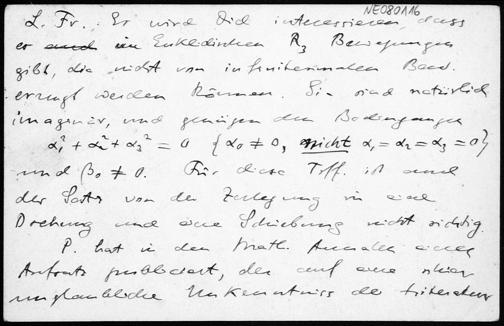 NE080116
L. Fr. Er wird Dich interessieren, dass
es auch im Euklidischen R₃ Bewegungen
gibt, die nicht von infinitesimalen Bew.
erzeugt werden können. Sie sind natürlich
imaginär, und genügen den Bedingungen
α₁² + α₂² + α₃² = 0 {α₀ ≠ 0, nicht α₁ = α₂ = α₃ = 0}
und β₀ ≠ 0. Für diese Trff. ist auch
der Satz von der Zerlegung in eine
Drehung und eine Schiebung nicht richtig.
P. hat in den Math. Annalen einen
Aufsatz publiciert, der auf eine
unglaubliche Unkenntniss der Litteratur